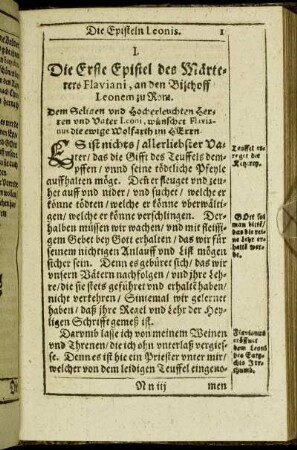 Die Episteln Leonis. 1
I.
Die Erste Epistel des Märte-
rers Flaviani, an den Bischoff
Leonem zu Rom.
Dem Seligen und Hocherleuchten Her-
ren und Vater Leoni, wünschet Flavia-
nus die ewige Wolfarth im HErrn
ES ist nichts/ allerliebster Va-
ter/ das die Gifft des Teuffels dem-
pffen/ vnnd seine tödtliche Pfeyle
auffhalten möge. Deñ er fleuget vnd zeu-
het auff vnd nider/ vnd suchet/ welche er
könne tödten/ welche er könne vberwälti-
gen/ welche er könne verschlingen. Der-
halben müssen wir wachen/ vnd mit fleissi-
gem Gebet bey Gott erhalten/ das wir für
seinem nichtigen Anlauff vnd List mögen
sicher sein. Denn es gebüret sich/ das wir
vnsern Vätern nachfolgen/ vnd ihre Leh-
re/ die sie stets geführet vnd erhaltē haben/
nicht verkehren/ Sintemal wir gelernet
haben/ daß ihre Regel vnd Lehr der Hey-
ligen Schrifft gemeß ist.
Darumb lasse ich von meinem Weinen
vnd Threnen/ die ich ohn vnterlaß vergies-
se. Denn es ist hie ein Priester vnter mir/
welcher von dem leidigen Teuffel eingeno-
N n iij men
Teuffel er-
reget die
Ketzrey.
Gott sol
man bittē/
das die rei-
ne Lehr er-
halten wer-
de.
Flavianus
eröffnet
dem Leoni
des Euty-
chis Irr-
thumb.